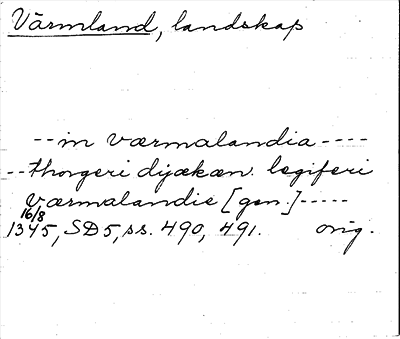 Värmland, landskap
--in værmalandia----
--thorgeri dijækæn. legiferi
værmalandie [gen.]-----
16/8
1345, SD5, ss. 490, 491. orig.